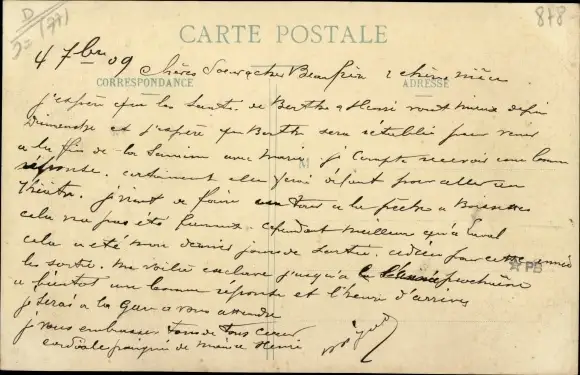 D
(77)
878
CARTE POSTALE
4 7bre 09 Chères Soeurs cher Beaufrère chère mère
CORRESPONDANCE
ADRESSE
j'espère que les santés de Berthe Henri vont mieux depuis
Dimanche et j'espère que Berthe sera rétablie pour venir
a la fin de la Semaine avec Marie je compte recevoir une bonne
réponse. certainement elle défaut pour aller au
théâtre. je vient de faire un tour a la pêche a
cela n'a pas été fameux. cependant meilleur qu'à Laval
cela a été mon dernier jour de Sortie. adieu pour cette année
les sorties. me voila esclave jusqu'à la prochaine
a bientôt une bonne réponse et l'heure d'arrivée
je serai a la Gare a vous attendre
je vous embrasse tous de tout coeur
cordiale poignée de main a Henri
PB